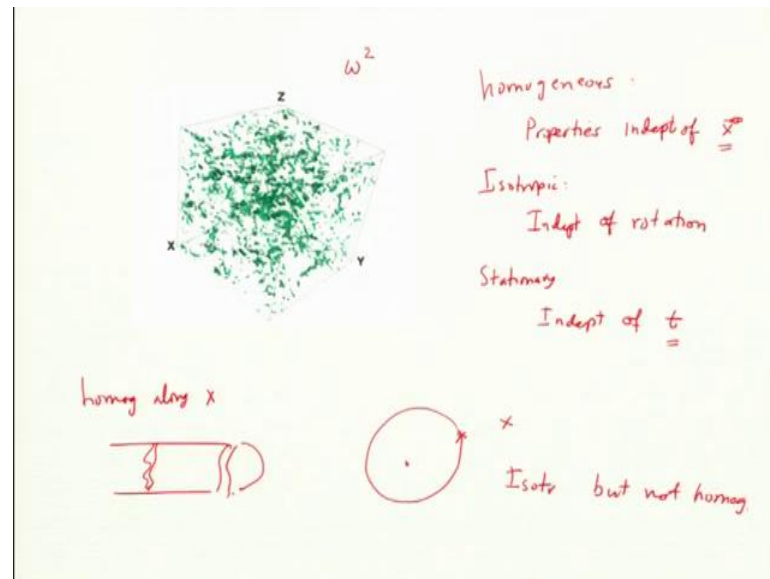 ω²
Z
X
Y
homogeneous .
Properties indept of x⃗
Isotropic:
Indept of rotation
Stationary
Indept of t
homog along x
x
x
Isotr but not homog.